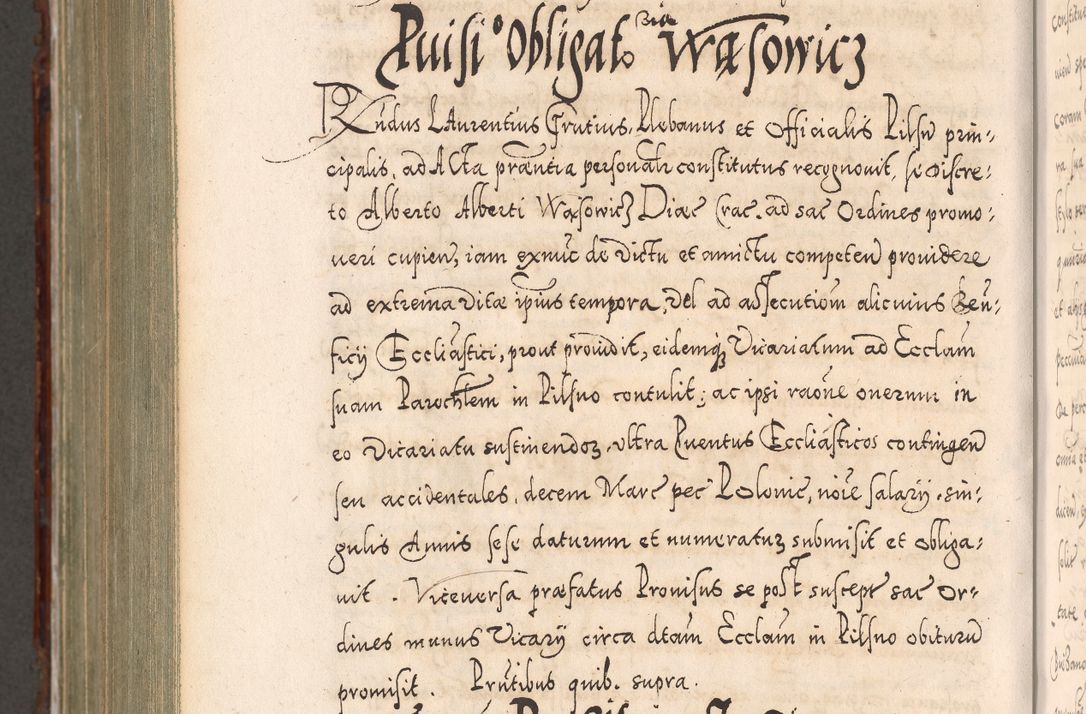 Puisi° Obligato Wąsowicz
Rndus LAurentius Grutius, Plebanus et Officialis Pilsn prin-
cipalis, ad Acta præntia personalr constitutus recognouit, se discre-
to Alberto Alberti Wąsowicz Diæc Crac. ad sac Ordines promo-
ueri cupien, iam exnuc de victu et amictu competen prouidere
ad extrema vitæ ipius tempora, vel ad assecutiom alicuius Ben-
ficij Eccliastici, prout prouidit, eidemq Vicariatum ad Ecclam
suam Parochlem in Pilsno contulit; ac ipsi raone onerum in
eo Vicariatu sustinendoz, vltra Puentus Eccliasticos contingen
seu accidentales, decem Marc pec Polonic, noie salarij, sin-
gulis Annis sese daturum et numeraturz submisit et obliga-
uit. Viceversa præfatus Prouisus se post suscept sac Or-
dines munus Vicarij circa dtam Ecclam in Pilsno obiturū
promisit. Prntibus quib. supra.